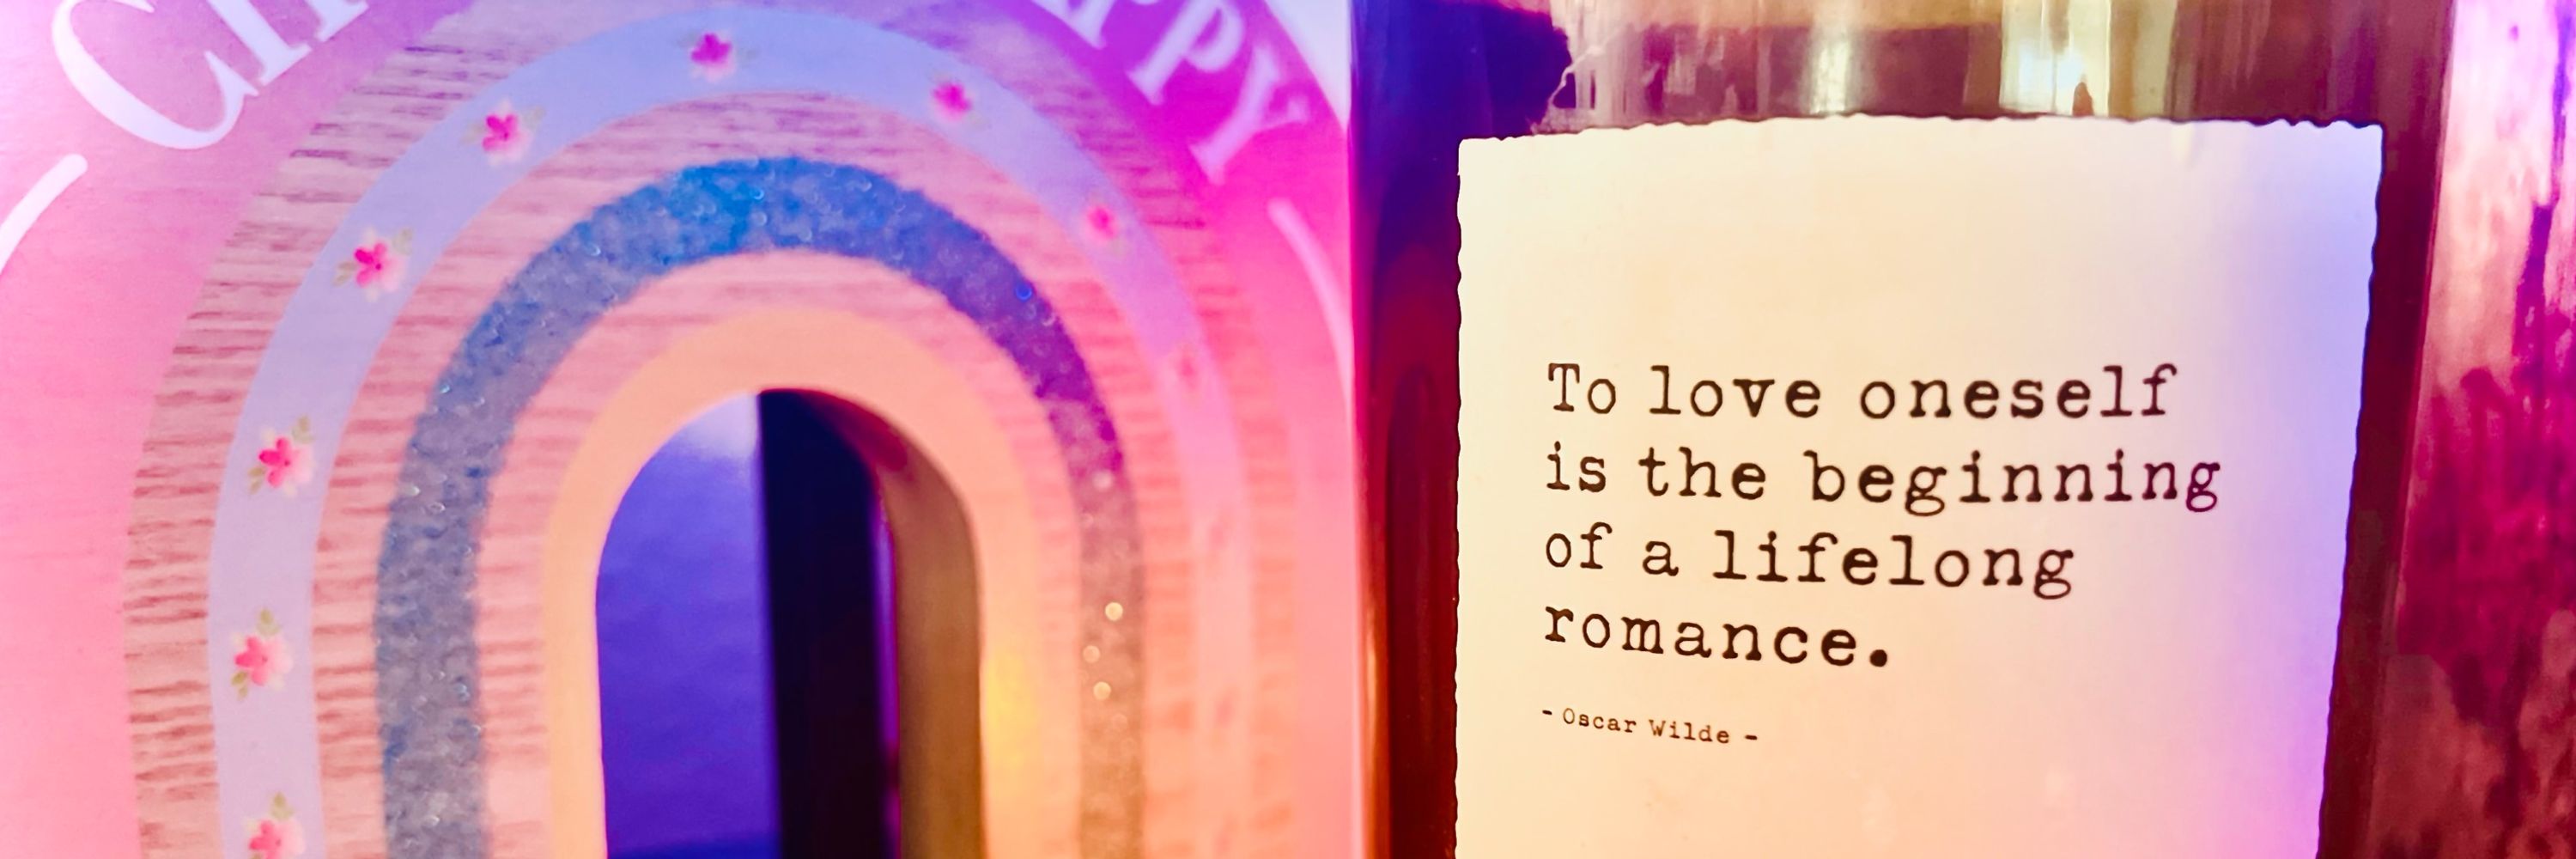 To love oneself
is the beginning
of a lifelong
romance.
- Oscar Wilde -